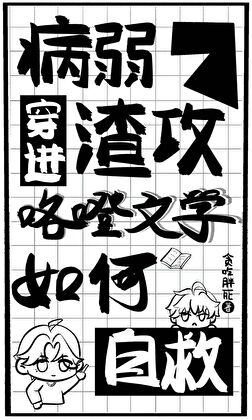 病弱
穿进
渣攻
咯噔文学
如何
自救
贪吃胖鸵 著